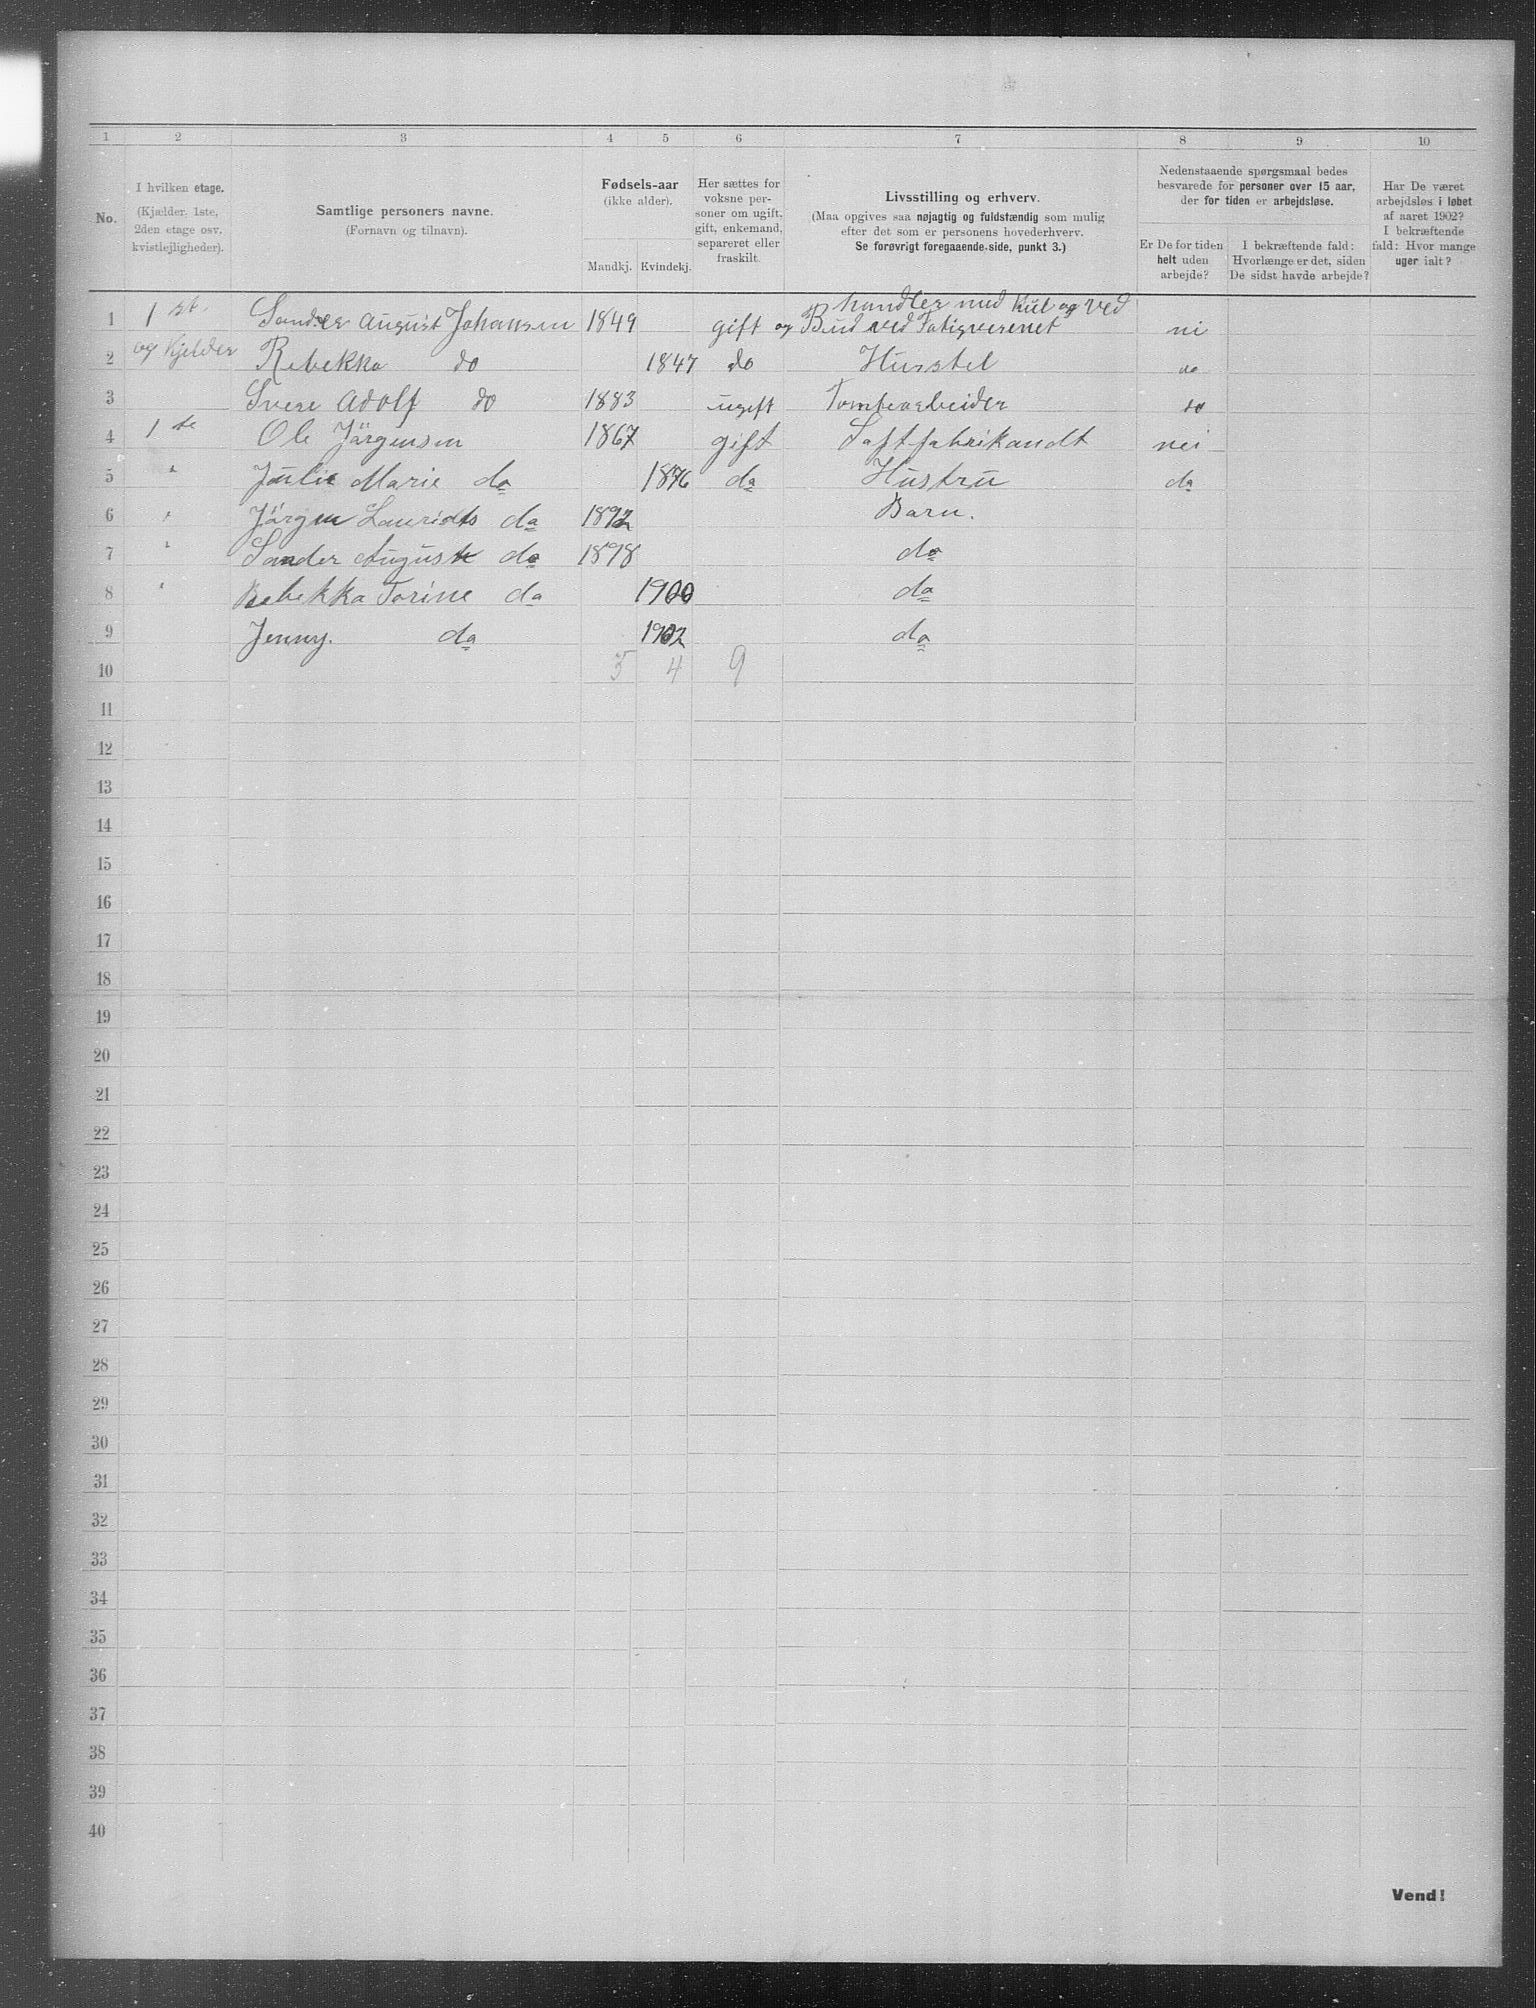 1 2 3 4 5 6 7 8 9 10
No.
I hvilken etage.
(Kjælder. 1ste,
2den etage osv.
kvistlejligheder).
Samtlige personers navne.
(Fornavn og tilnavn).
Fødsels-aar
(ikke alder).
Mandkj. Kvindekj.
Her sættes for
voksne per-
soner om ugift,
gift, enkemand,
separeret eller
fraskilt.
Livsstilling og erhverv.
(Maa opgives saa nøjagtig og fuldstændig som mulig
efter det som er personens hovederhverv.
Se forøvrigt foregaaende side, punkt 3.)
Nedenstaaende spørgsmaal bedes
besvarede for personer over 15 aar,
der for tiden er arbejdsløse.
Er De for tiden
helt uden
arbejde?
I bekræftende fald:
Hvorlænge er det, siden
De sidst havde arbejde?
Har De været
arbejdsløs i løbet
af aaret 1902?
I bekræftende
fald: Hvor mange
uger ialt?
handler med Kul og Ved
1 1 st. Sander August Johansen 1849 gift og Bud ved Fatigvesenet nei
2 og Kjelder Rebekka do 1847 do Husstel do
3 Svere Adolf do 1883 ugift Tomtearbeider do
4 1 te Ole Järgensen 1867 gift Saftfabrikandt nei
5 " Julie Marie do 1876 do Hustru do
6 " Järgen Lauridts do 1892 Barn.
7 " Sander August do 1898 do
8 " Rebekka Torine do 1900 do
9 Jenny. do 1902 do
10 5 4 9
11
12
13
14
15
16
17
18
19
20
21
22
23
24
25
26
27
28
29
30
31
32
33
34
35
36
37
38
39
40
Vend!